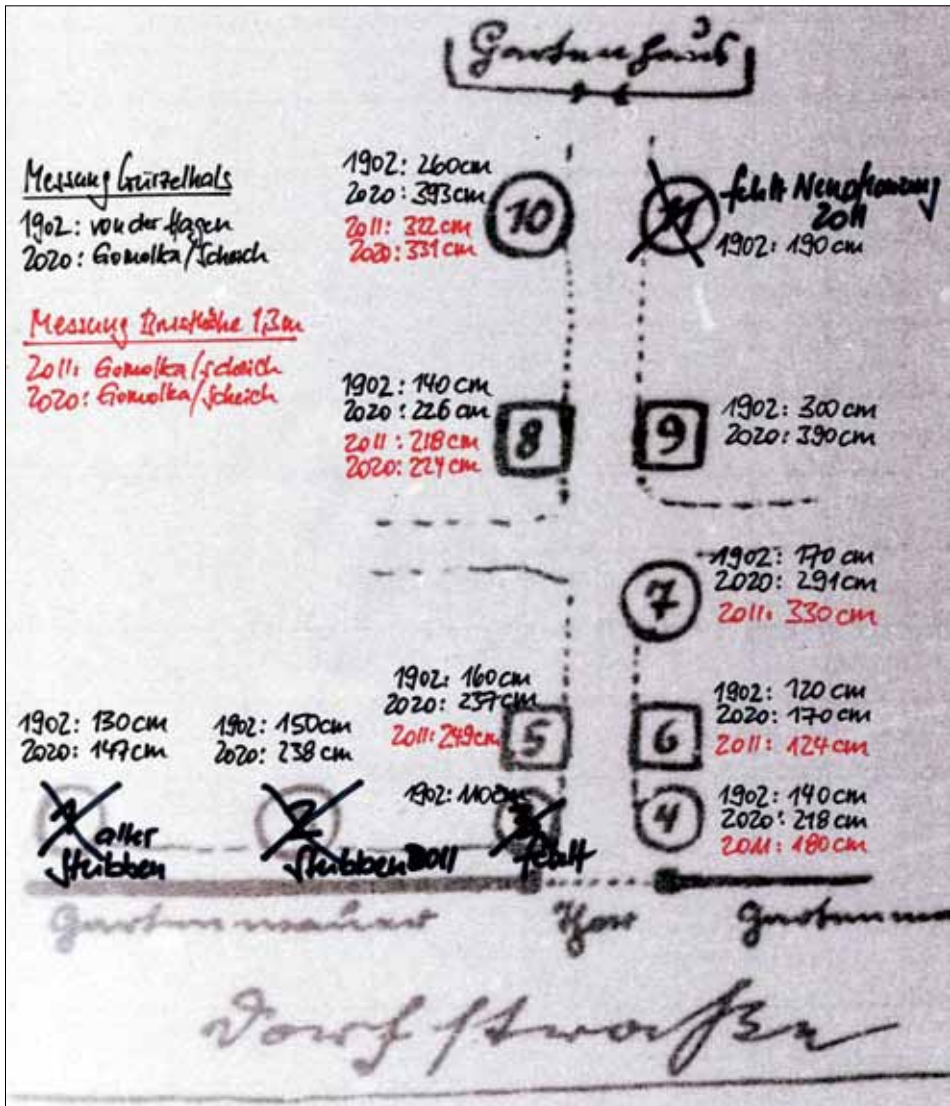 Gartenhaus
Messung Wurzelhals
1902: von der Hagen
2020: Gomolka/Scheich
Messung Brusthöhe 1,3m
2011: Gomolka/Scheich
2020: Gomolka/Scheich
1902: 260cm
2020: 393cm
2011: 322cm
2020: 331cm
10
11
fehlt Neupflanzung
2011
1902: 190cm
1902: 140cm
2020: 226cm
2011: 218cm
2020: 224cm
8
9
1902: 300cm
2020: 390cm
7
1902: 170cm
2020: 291cm
2011: 330cm
1902: 160cm
2020: 237cm
2011: 249cm
5
6
1902: 120cm
2020: 170cm
2011: 124cm
1902: 130cm
2020: 147cm
1 alter
Stubben
1902: 150cm
2020: 238cm
2
Stubben 2011
1902: 110cm
3
fehlt
4
1902: 140cm
2020: 218cm
2011: 180cm
Gartenmauer Thor Gartenm
Dorfstraße